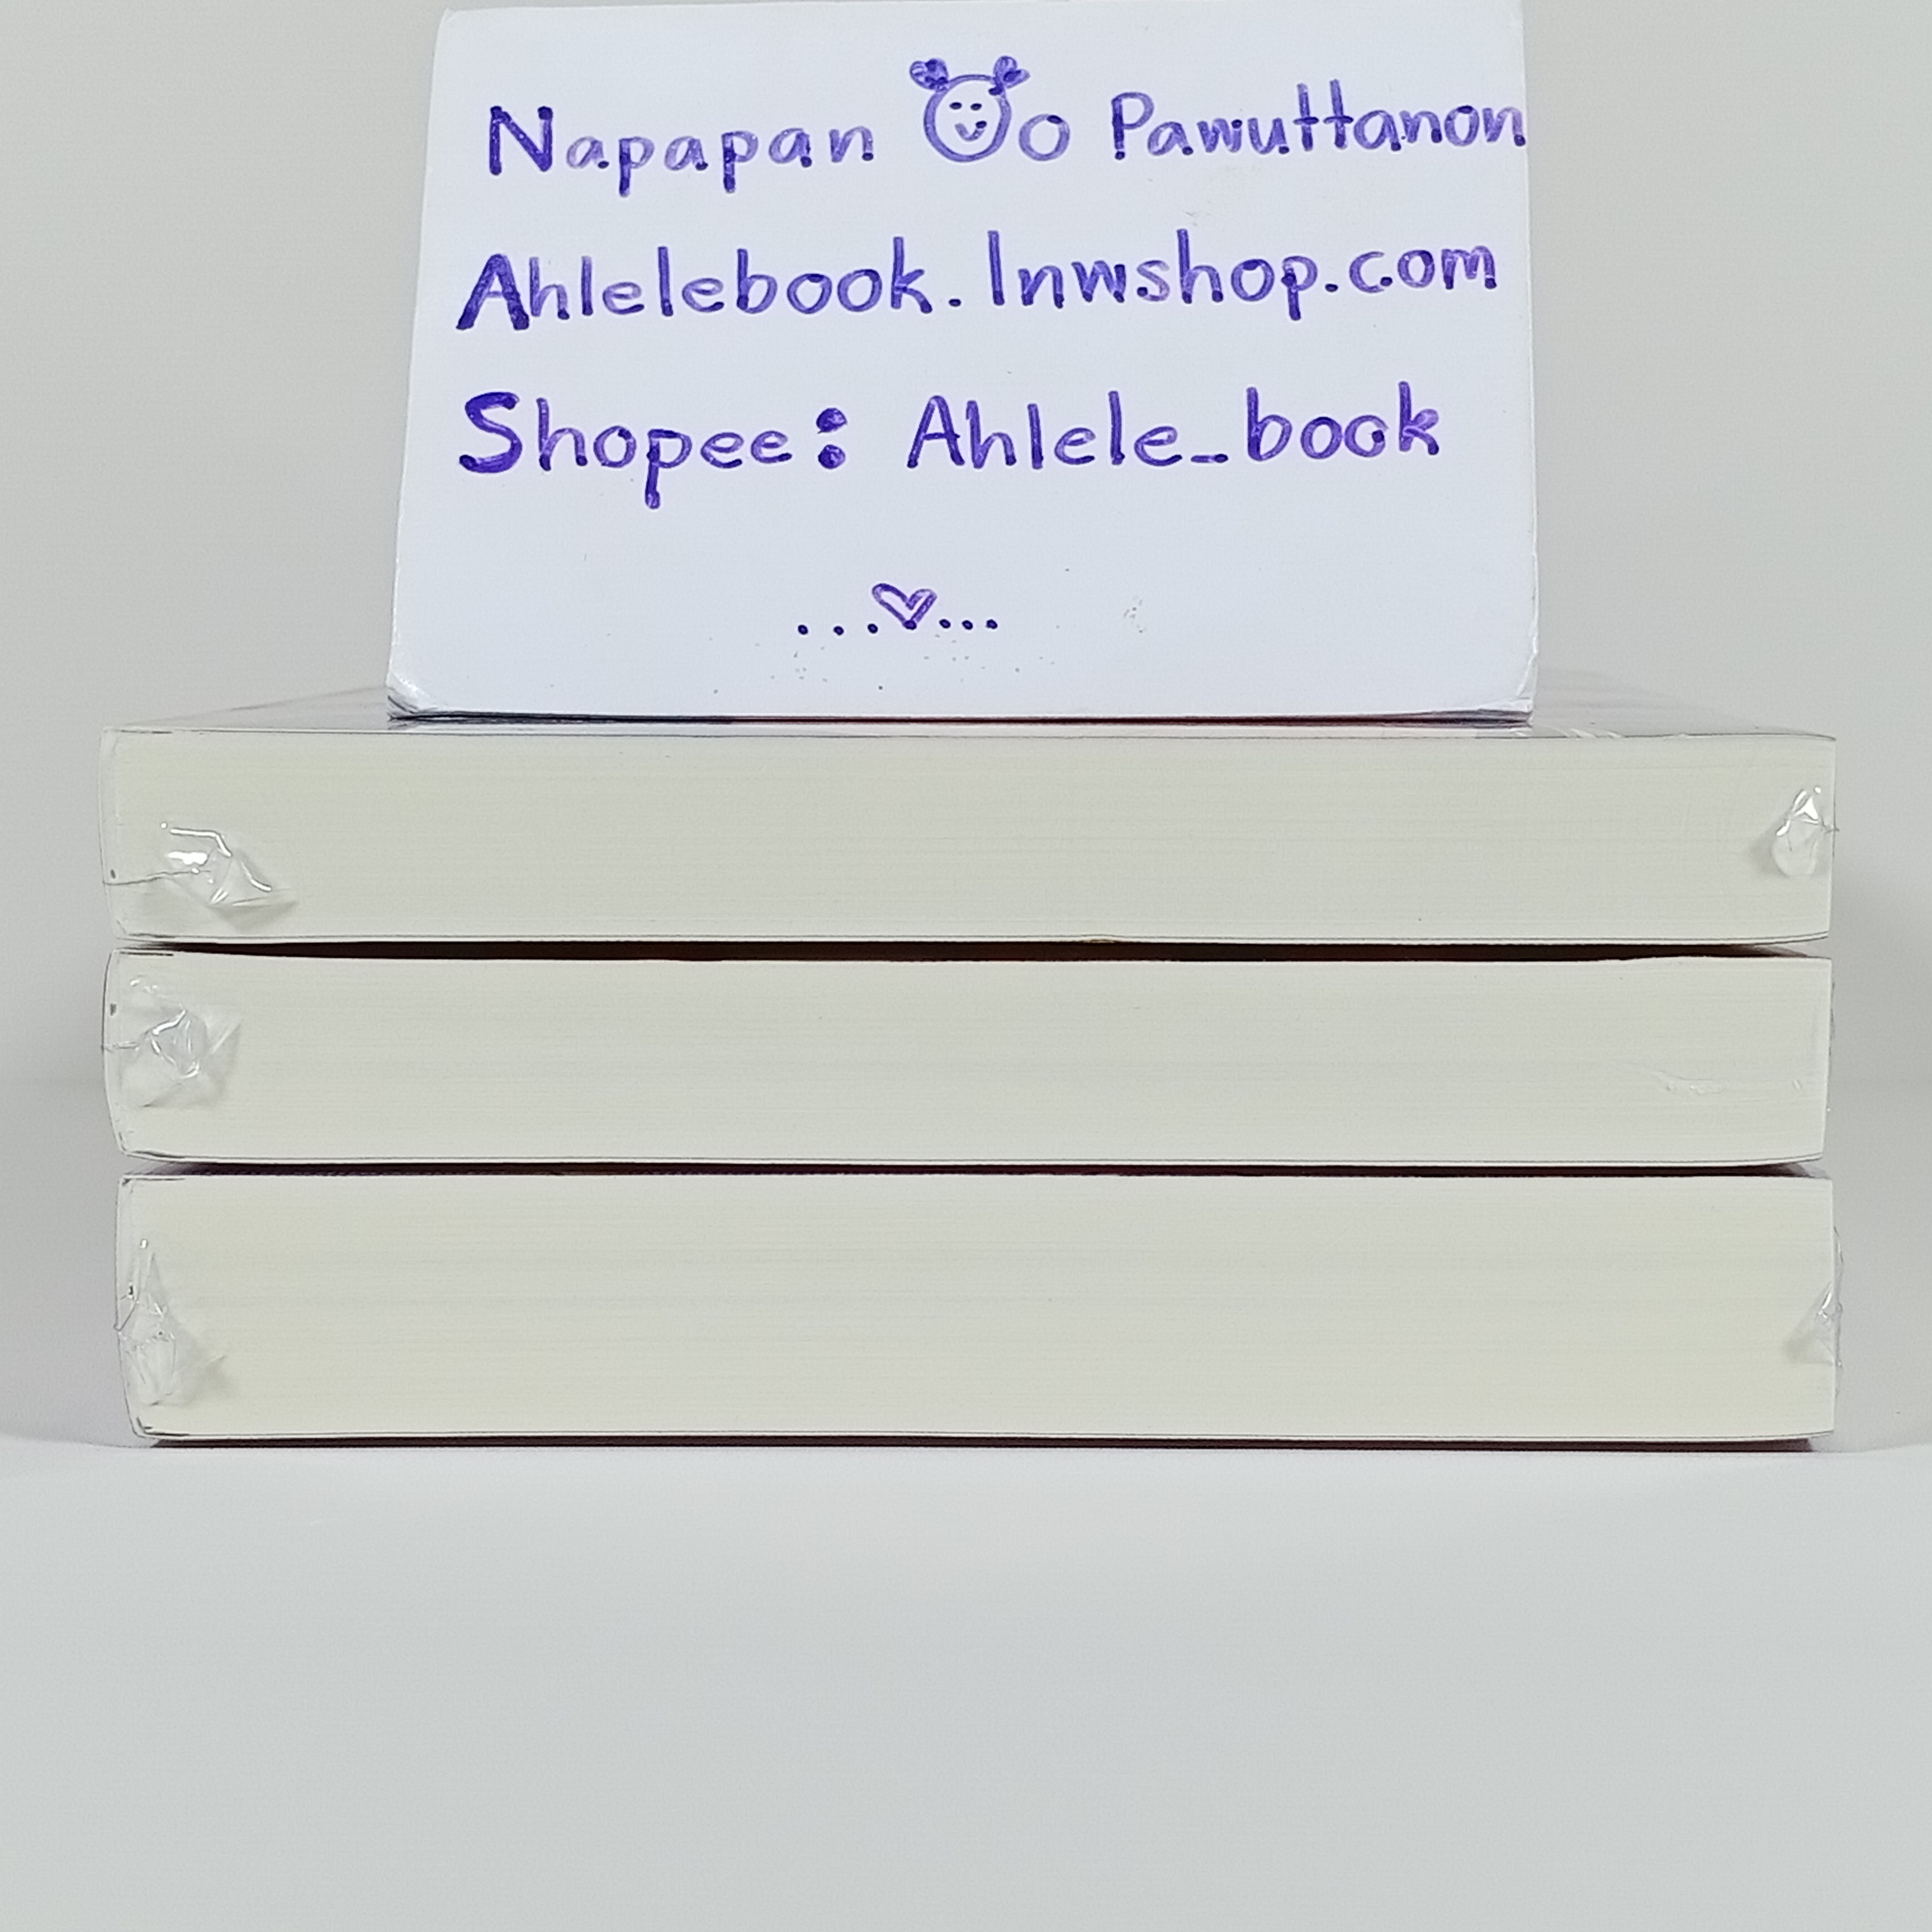 Napapan Oo Pawuttanon
Ahlelebook.lnwshop.com
Shopee: Ahlele_book
...♡...